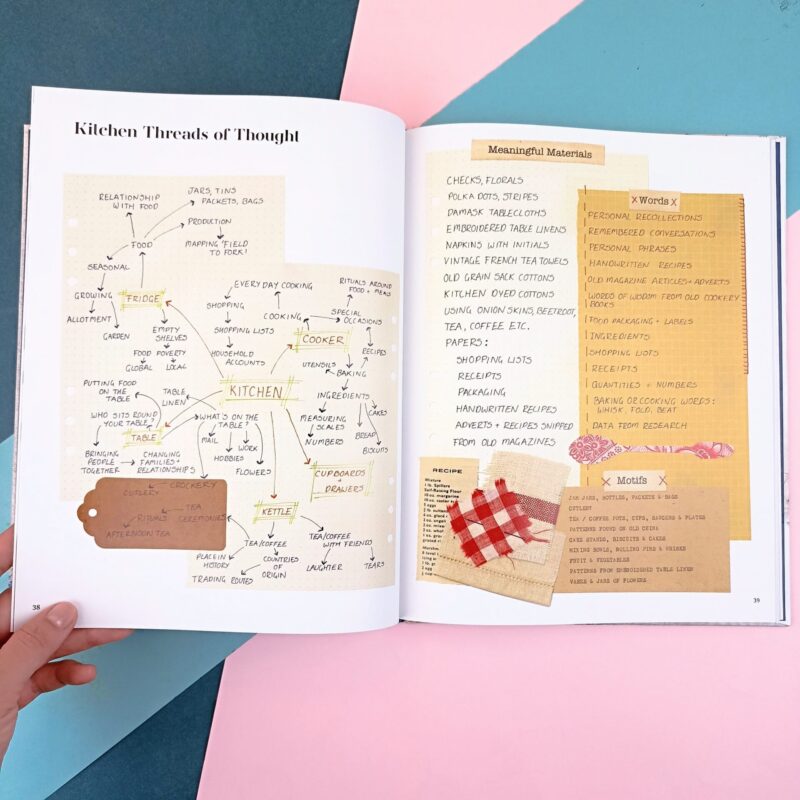 Kitchen Threads of Thought
RELATIONSHIP
WITH FOOD
JARS, TINS
PACKETS, BAGS
PRODUCTION
MAPPING 'FIELD
TO FORK'!
FOOD
SEASONAL
GROWING
ALLOTMENT
GARDEN
FRIDGE
EMPTY
SHELVES
FOOD POVERTY
GLOBAL
LOCAL
EVERY DAY COOKING
RITUALS AROUND
FOOD + MEALS
SHOPPING
COOKING
SPECIAL
OCCASIONS
SHOPPING LISTS
COOKER
HOUSEHOLD
ACCOUNTS
RECIPES
UTENSILS
BAKING
KITCHEN
INGREDIENTS
CAKES
MEASURING
SCALES
BREAD
NUMBERS
BISCUITS
PUTTING FOOD
ON THE
TABLE
TABLE
LINEN
WHO SITS ROUND
YOUR TABLE?
WHAT'S ON THE
TABLE?
TABLE
MAIL
WORK
HOBBIES
FLOWERS
BRINGING
PEOPLE
TOGETHER
CHANGING
FAMILIES +
RELATIONSHIPS
CUPBOARDS
+
DRAWERS
CROCKERY
CUTLERY
TEA
CEREMONIES
RITUALS
AFTERNOON TEA
KETTLE
TEA/COFFEE
TEA/COFFEE
WITH FRIENDS
PLACE IN
HISTORY
COUNTRIES
OF
ORIGIN
LAUGHTER
TEARS
TRADING ROUTES
38
Meaningful Materials
CHECKS, FLORALS
POLKA DOTS, STRIPES
DAMASK TABLECLOTHS
EMBROIDERED TABLE LINENS
NAPKINS WITH INITIALS
VINTAGE FRENCH TEA TOWELS
OLD GRAIN SACK COTTONS
KITCHEN DYED COTTONS
USING ONION SKINS, BEETROOT,
TEA, COFFEE ETC.
PAPERS:
SHOPPING LISTS
RECEIPTS
PACKAGING
HANDWRITTEN RECIPES
ADVERTS + RECIPES SNIPPED
FROM OLD MAGAZINES
Words
PERSONAL RECOLLECTIONS
REMEMBERED CONVERSATIONS
PERSONAL PHRASES
HANDWRITTEN RECIPES
OLD MAGAZINE ARTICLES + ADVERTS
WORDS OF WISDOM FROM OLD COOKERY
BOOKS
FOOD PACKAGING + LABELS
INGREDIENTS
SHOPPING LISTS
RECEIPTS
QUANTITIES + NUMBERS
BAKING OR COOKING WORDS:
WHISK, FOLD, BEAT
DATA FROM RESEARCH
RECIPE
Mixture
1 lb. Spillers
Self-Raising Flour
10 oz. margarine
Motifs
JAM JARS, BOTTLES, PACKETS & BAGS
CUTLERY
TEA / COFFEE POTS, CUPS, SAUCERS & PLATES
PATTERNS FOUND ON OLD CHINA
CAKE STANDS, BISCUITS & CAKES
MIXING BOWLS, ROLLING PINS & WHISKS
FRUIT & VEGETABLES
PATTERNS FROM EMBROIDERED TABLE LINEN
VASES & JARS OF FLOWERS
39